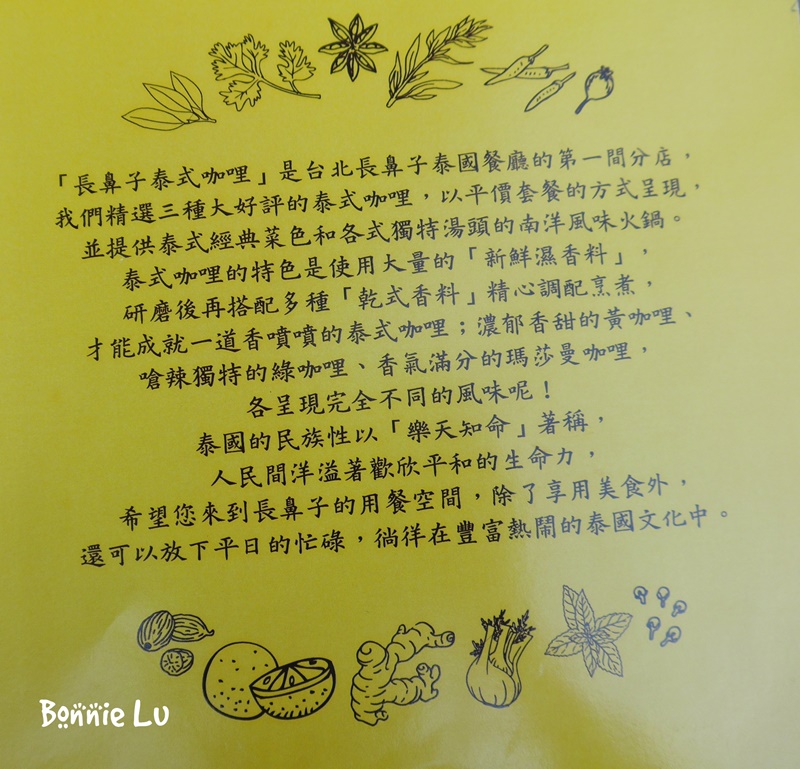 「長鼻子泰式咖哩」是台北長鼻子泰國餐廳的第一間分店，
我們精選三種大好評的泰式咖哩，以平價套餐的方式呈現，
並提供泰式經典菜色和各式獨特湯頭的南洋風味火鍋。
泰式咖哩的特色是使用大量的「新鮮濕香料」，
研磨後再搭配多種「乾式香料」精心調配烹煮，
才能成就一道香噴噴的泰式咖哩；濃郁香甜的黃咖哩、
嗆辣獨特的綠咖哩、香氣滿分的瑪莎曼咖哩，
各呈現完全不同的風味呢！
泰國的民族性以「樂天知命」著稱，
人民間洋溢著歡欣平和的生命力，
希望您來到長鼻子的用餐空間，除了享用美食外，
還可以放下平日的忙碌，徜徉在豐富熱鬧的泰國文化中。
Bonnie Lu